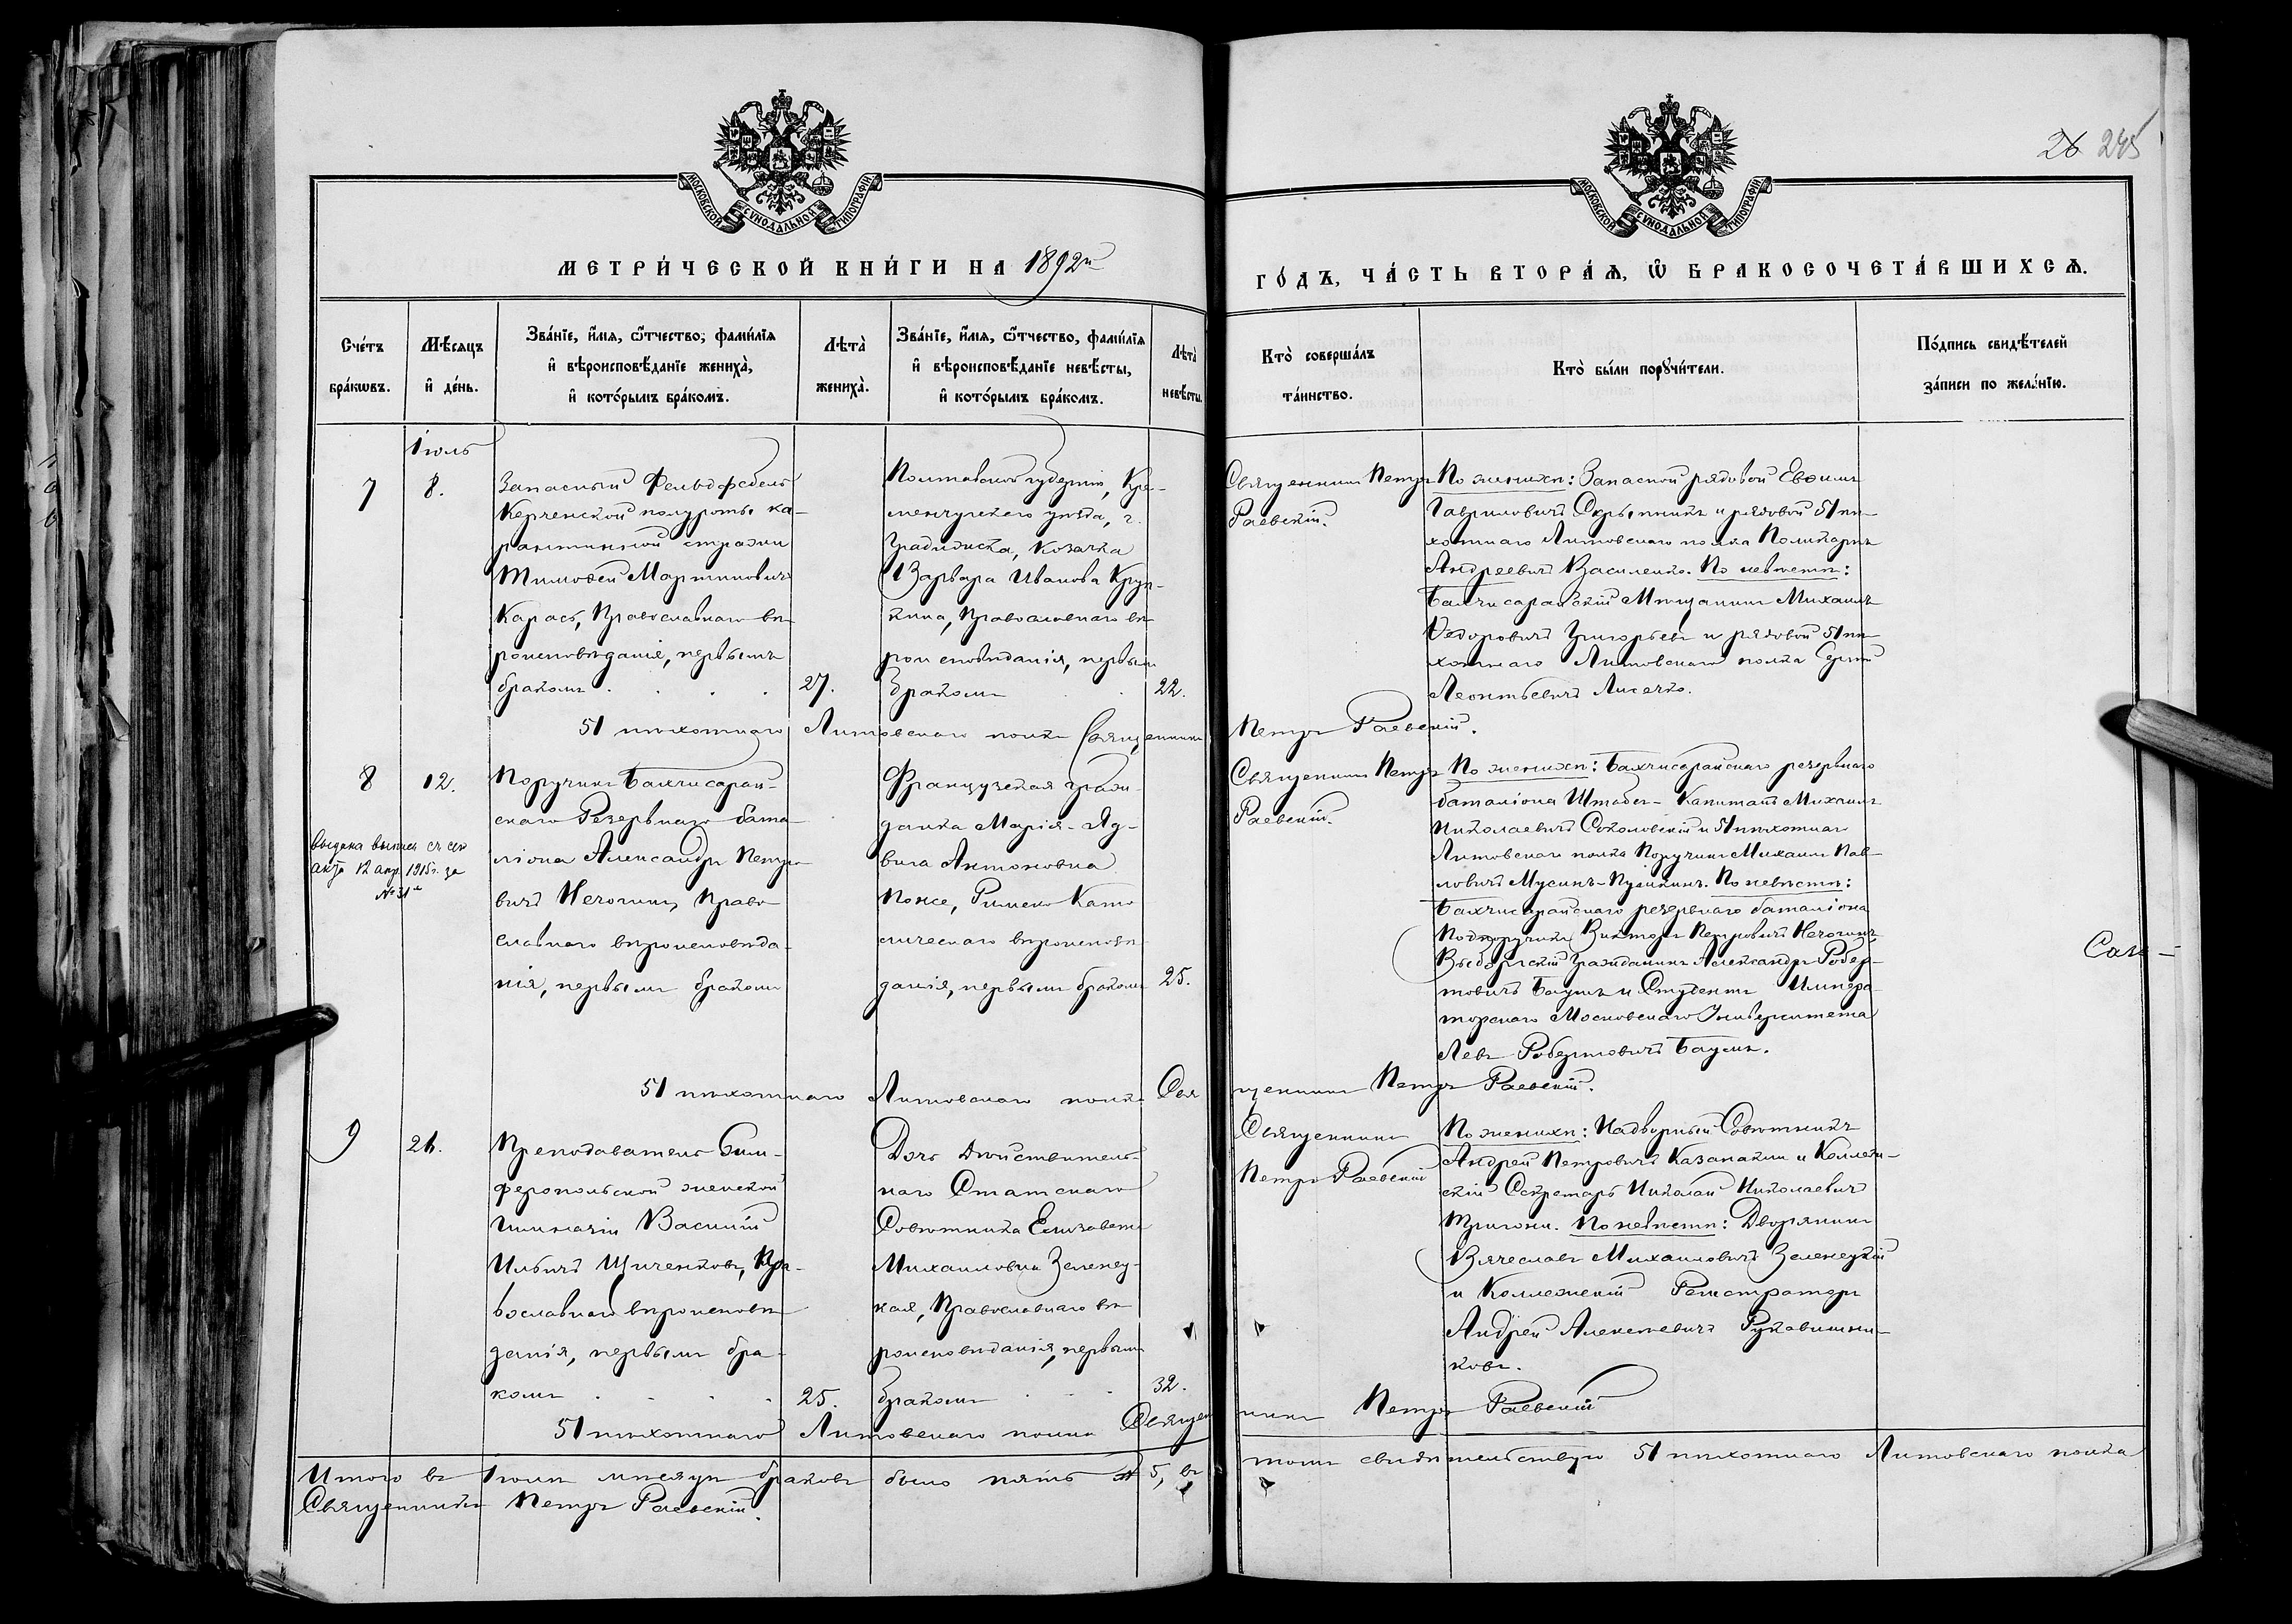 26 245
МОСКОВСКОЙ СѴНОДАЛЬНОЙ ТИПОГРАФІИ
МОСКОВСКОЙ СѴНОДАЛЬНОЙ ТИПОГРАФІИ
МЕТРИ́ЧЕСКОЙ КНИ́ГИ НА 1892й
ГО́ДЪ, ЧА́СТЬ ВТОРА́Ѧ, Ѡ҆ БРАКОСОЧЕТА́ВШИХСѦ.
Сче́тъ
бра́кѡвъ.
Мѣ́сяцъ
и҆ де́нь.
Зва́нїе, и҆́мѧ, ѻ҆́тчество, фами́лїѧ
и҆ вѣроисповѣ́данїе жениха̀,
и҆ кото́рымъ бра́комъ.
Лѣта̀
жениха̀.
Зва́нїе, и҆́мѧ, ѻ҆́тчество, фами́лїѧ
и҆ вѣроисповѣ́данїе невѣ́сты,
и҆ кото́рымъ бра́комъ.
Лѣта̀
невѣ́сты.
Кто̀ соверша́лъ
та́инство.
Кто̀ бы́ли порꙋчи́тели.
По́дпись свидѣ́телей
за́писи по жела́нїю.
Іюль
7
8.
Запасный Фельдфебель
Керченской полуроты ка-
рантинной стражи
Тимоѳей Мартиновичъ
Карась, Православнаго вѣ-
роисповѣданія, первымъ
бракомъ
27.
Полтавской губерніи, Кре-
менчугскаго уѣзда, г.
Градижска, Козачка
Варвара Иванова
кина, Православнаго вѣ-
роисповѣданія, первымъ
бракомъ
22.
Священникъ Петръ
Раевскій.
По женихѣ: Запасной рядовой Евѳимъ
Гавриловичъ Скрыпникъ и рядовой 51 пѣ-
хотнаго Литовскаго полка Поликарпъ
Андреевичъ Василенко. По невѣстѣ:
Бахчисарайскій Мѣщанинъ Михаилъ
Ѳедоровичъ Григорьевъ и рядовой 51 пѣ-
хотнаго Литовскаго полка Сергѣй
Леонтьевичъ Лисечко.
51 пѣхотнаго Литовскаго полка Священникъ Петръ Раевскій.
8
12.
Выдана выпись съ сего
акта 12 апр. 1915 г. за
№ 31
Поручикъ Бахчисарай-
скаго Резервнаго бата-
ліона Александръ Петро-
вичъ Нечогинъ, Право-
славнаго вѣроисповѣда-
нія, первымъ бракомъ
Французская граж-
данка Марія-Яд-
вига Антоновна
Понсе, Римско Като
лическаго вѣроисповѣ-
данія, первымъ бракомъ
25.
Священникъ Петръ
Раевскій.
По женихѣ: Бахчисарайскаго резервнаго
баталіона Штабсъ-Капитанъ Михаилъ
Николаевичъ Соколовскій и 51 пѣхотнаго
Литовскаго полка Поручикъ Михаилъ Пав-
ловичъ Мусинъ-Пушкинъ. По невѣстѣ:
Бахчисарайскаго резервнаго баталіона
Подпоручикъ Викторъ Петровичъ Нечогинъ,
Выборгскій Гражданинъ Александръ Робер-
товичъ Баумъ и Студентъ Импера-
торскаго Московскаго Университета
Левъ Робертовичъ Баумъ.
51 пѣхотнаго Литовскаго полка Священникъ Петръ Раевскій.
9
Преподаватель Сим-
феропольской женской
гимназіи Василій
Ильичъ Щиченковъ, Пра-
вославнаго вѣроисповѣ-
данія, первымъ бра-
комъ
25.
Дочь Дѣйствитель-
наго Статскаго
Совѣтника Елизавета
Михаиловна Зеленец-
кая, Православнаго вѣ-
роисповѣданія, первымъ
бракомъ
32.
Священникъ
Петръ Раевскій
По женихѣ: Надворный Совѣтникъ
Андрей Петровичъ Казанаклій и Коллеж-
скій Секретарь Николай Николаевичъ
Тригони. По невѣстѣ: Дворянинъ
Вячеславъ Михаиловичъ Зеленецкій
и Коллежскій Регистраторъ
Андрей Алексѣевичъ Рукавишни-
ковъ.
51 пѣхотнаго Литовскаго полка Священникъ Петръ Раевскій
Итого въ Іюлѣ мѣсяцѣ браковъ было пять 5, въ томъ свидѣтельствую 51 пѣхотнаго Литовскаго полка
Священникъ Петръ Раевскій.